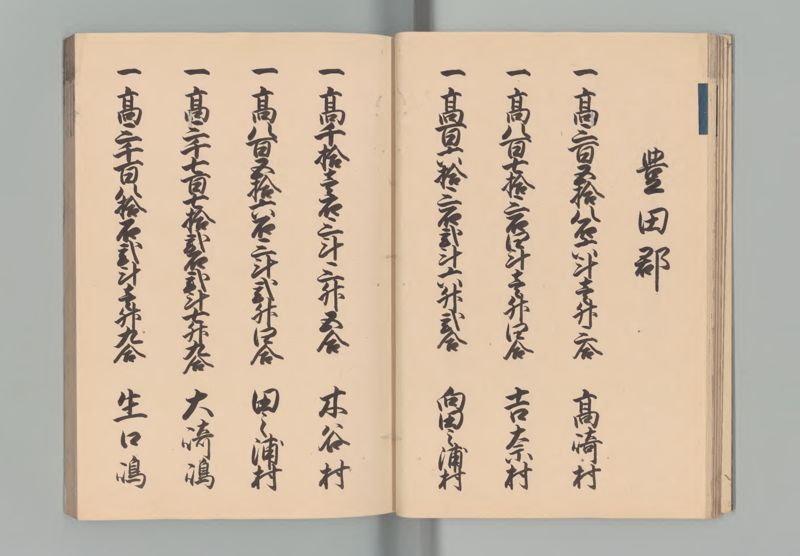 豊田郡
一 高三百五拾八石六斗壱升三合 高崎村
一 高八百七拾三石四斗壱升四合 吉奈村
一 高百六拾三石弐斗六升弐合 向田之浦村
一 高千拾壱石三斗三升五合 木谷村
一 高八百五拾六石三斗弐升四合 田之浦村
一 高三千七百七拾弐石弐斗七升九合 大崎嶋
一 高三千百八拾石弐斗壱升九合 生口嶋